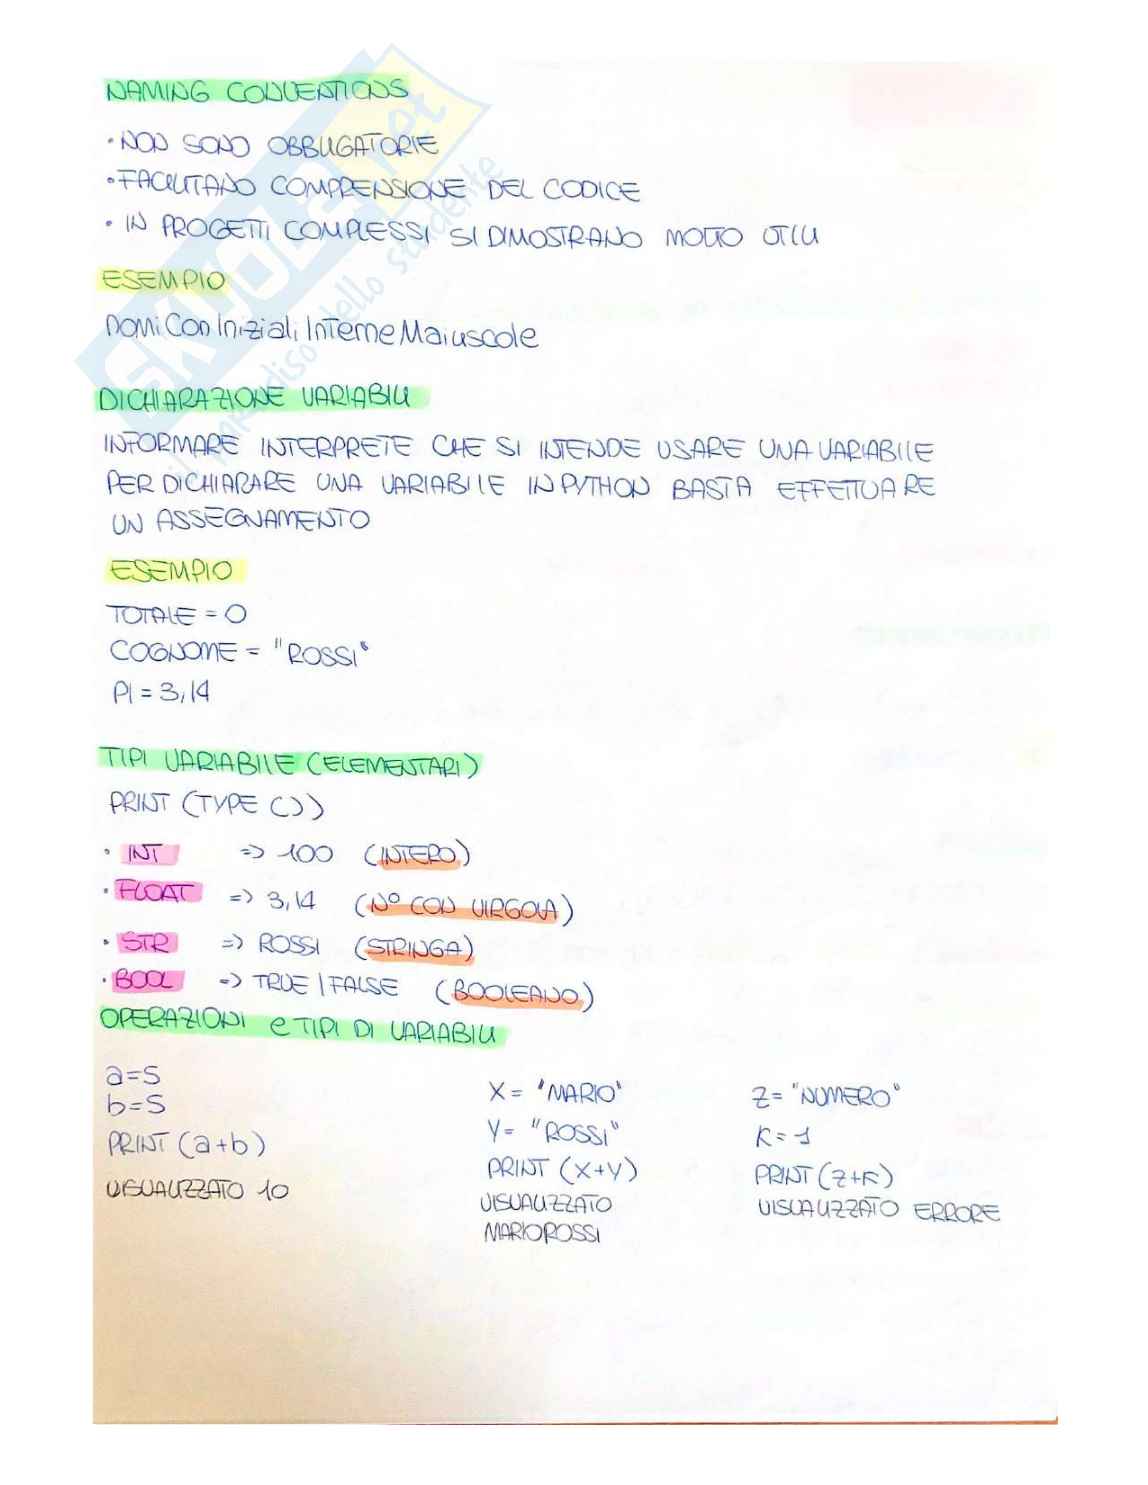 NAMING CONVENTIONS
• NON SONO OBBLIGATORIE
• FACILITANO COMPRENSIONE DEL CODICE
• IN PROGETTI COMPLESSI SI DIMOSTRANO MOLTO UTILI
ESEMPIO
nomiConInizialiInterneMaiuscole
DICHIARAZIONE VARIABILI
INFORMARE INTERPRETE CHE SI INTENDE USARE UNA VARIABILE
PER DICHIARARE UNA VARIABILE IN PYTHON BASTA EFFETTUARE
UN ASSEGNAMENTO
ESEMPIO
TOTALE = 0
COGNOME = "ROSSI"
PI = 3,14
TIPI VARIABILE (ELEMENTARI)
PRINT (TYPE ())
• INT => 100 (INTERO)
• FLOAT => 3,14 (N° CON VIRGOLA)
• STR => ROSSI (STRINGA)
• BOOL => TRUE | FALSE (BOOLEANO)
OPERAZIONI e TIPI DI VARIABILI
a=5
b=5
PRINT (a+b)
VISUALIZZATO 10
X = "MARIO"
Y = "ROSSI"
PRINT (X+Y)
VISUALIZZATO
MARIOROSSI
Z = "NUMERO"
K = 1
PRINT (Z+K)
VISUALIZZATO ERRORE
SKUOLA.net
il paradiso dello studente